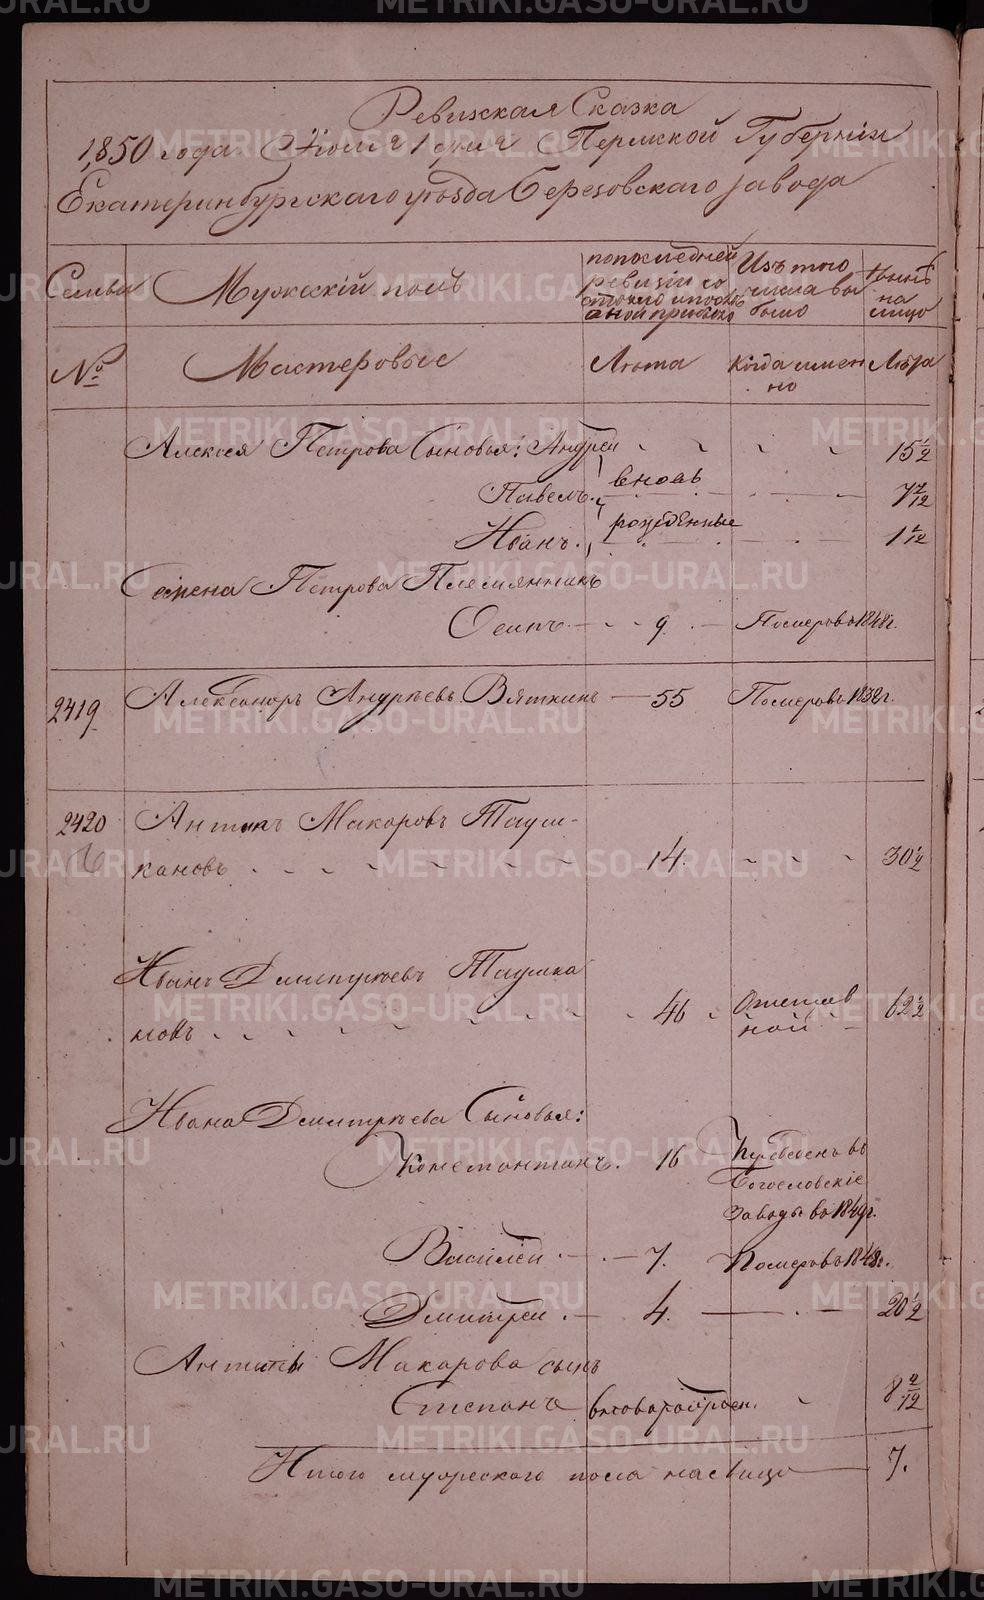 Ревижская Сказка
1850 года Июля 1 дня Пермской Губерніи
Екатеринбургскаго уѣзда Березовскаго завода
Семьи Мужескій полъ по последней ревизіи состояло и после оной прибыло Изъ того числа выбыло Нынѣ на лицо
№ Мастеровые Лѣта Когда именно Лѣта
Алексея Петрова Сыновья: Андрей 15 1/2
Павелъ вновь 7 7/12
Иванъ рожденные 1 1/12
Семена Петрова Племянникъ
Осипъ 9 Померъ в 1848 г.
2419 Александръ Андрѣевъ Вяткинъ 55 Померъ в 1838 г.
2420 Антипъ Макаровъ Таушкановъ 14 30 1/2
Иванъ Дмитрѣевъ Таушкановъ 46 Отставной 62 1/2
Ивана Дмитрѣева Сыновья:
Константинъ 16 Переведенъ въ Богословскіе Заводы во 1849 г.
Василей 7. Померъ в 1848 г.
Дмитрей 4. 20 1/2
Антипы Макарова сынъ
Степанъ вновь рожден. 8 2/12
Итого мужескаго пола на лицо 7.
METRIKI.GASO-URAL.RU